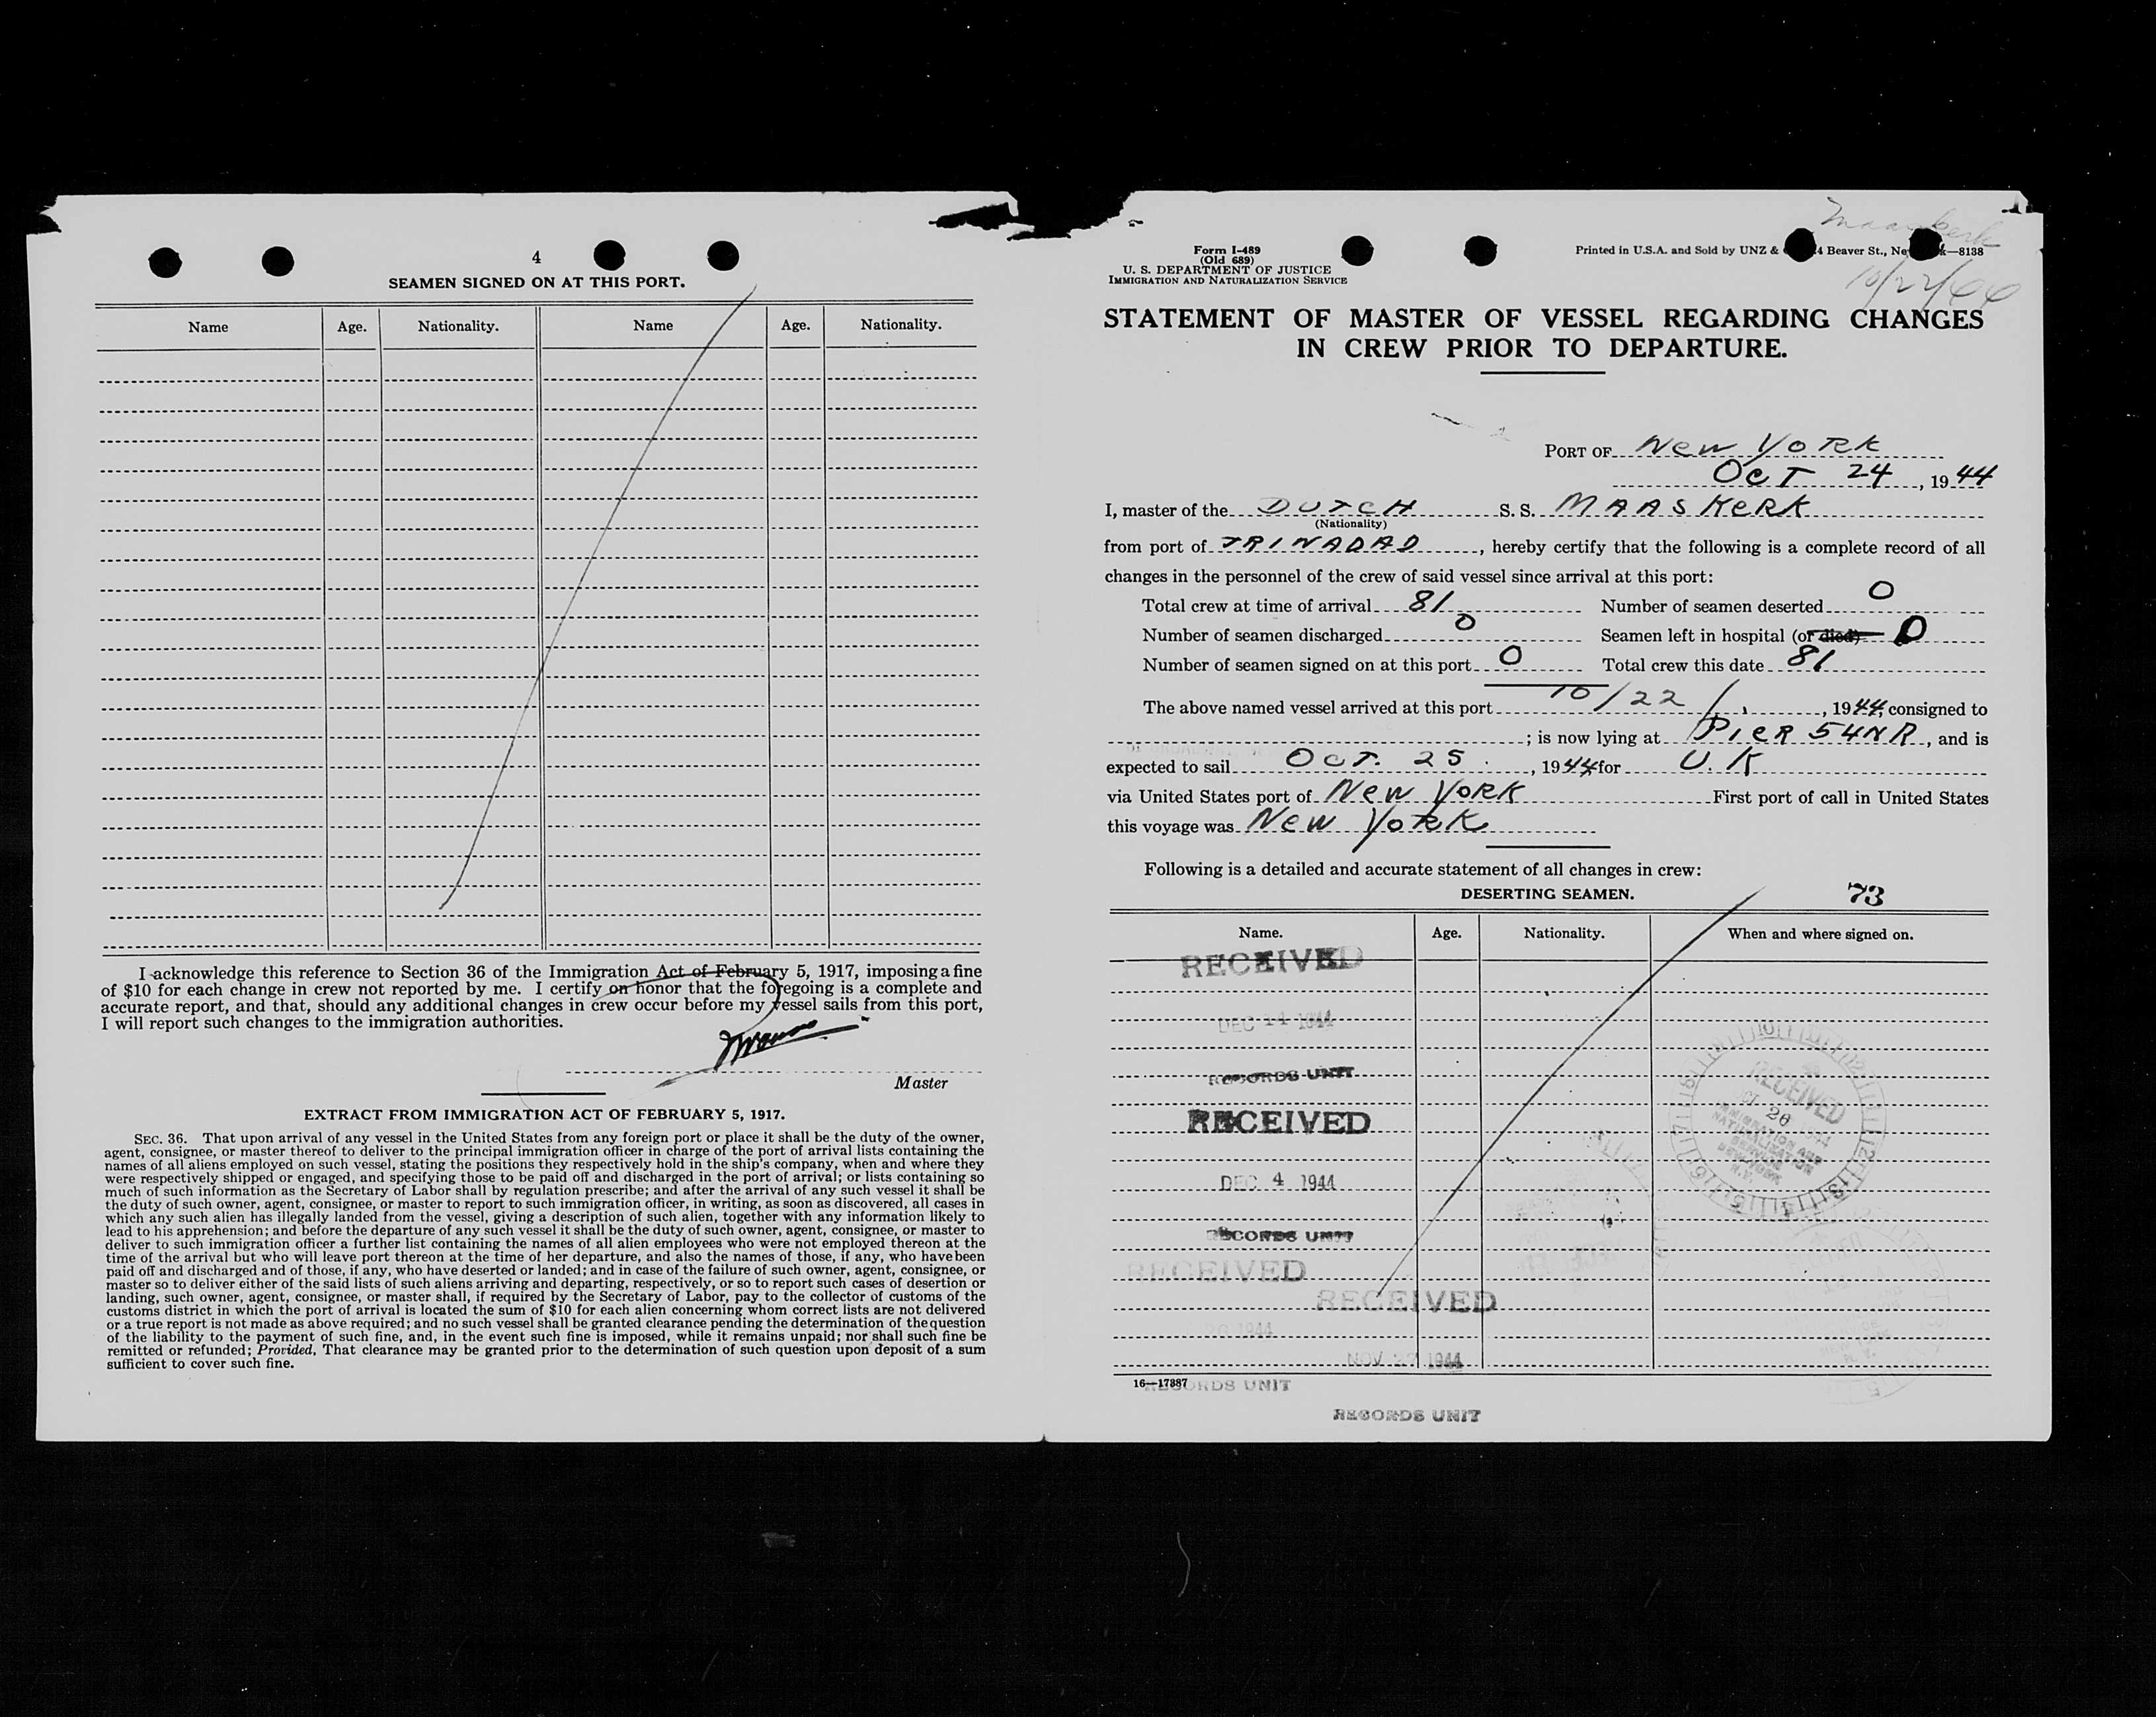 4
SEAMEN SIGNED ON AT THIS PORT.
Name Age. Nationality. Name Age. Nationality.
I acknowledge this reference to Section 36 of the Immigration Act of February 5, 1917, imposing a fine
of $10 for each change in crew not reported by me. I certify on honor that the foregoing is a complete and
accurate report, and that, should any additional changes in crew occur before my vessel sails from this port,
I will report such changes to the immigration authorities.
Master
EXTRACT FROM IMMIGRATION ACT OF FEBRUARY 5, 1917.
SEC. 36. That upon arrival of any vessel in the United States from any foreign port or place it shall be the duty of the owner,
agent, consignee, or master thereof to deliver to the principal immigration officer in charge of the port of arrival lists containing the
names of all aliens employed on such vessel, stating the positions they respectively hold in the ship's company, when and where they
were respectively shipped or engaged, and specifying those to be paid off and discharged in the port of arrival; or lists containing so
much of such information as the Secretary of Labor shall by regulation prescribe; and after the arrival of any such vessel it shall be
the duty of such owner, agent, consignee, or master to report to such immigration officer, in writing, as soon as discovered, all cases in
which any such alien has illegally landed from the vessel, giving a description of such alien, together with any information likely to
lead to his apprehension; and before the departure of any such vessel it shall be the duty of such owner, agent, consignee, or master to
deliver to such immigration officer a further list containing the names of all alien employees who were not employed thereon at the
time of the arrival but who will leave port thereon at the time of her departure, and also the names of those, if any, who have been
paid off and discharged and of those, if any, who have deserted or landed; and in case of the failure of such owner, agent, consignee, or
master so to deliver either of the said lists of such aliens arriving and departing, respectively, or so to report such cases of desertion or
landing, such owner, agent, consignee, or master shall, if required by the Secretary of Labor, pay to the collector of customs of the
customs district in which the port of arrival is located the sum of $10 for each alien concerning whom correct lists are not delivered
or a true report is not made as above required; and no such vessel shall be granted clearance pending the determination of the question
of the liability to the payment of such fine, and, in the event such fine is imposed, while it remains unpaid; nor shall such fine be
remitted or refunded; Provided, That clearance may be granted prior to the determination of such question upon deposit of a sum
sufficient to cover such fine.
Maaskerk
10/22/44
Form I-489
(Old 689)
U. S. DEPARTMENT OF JUSTICE
IMMIGRATION AND NATURALIZATION SERVICE
Printed in U.S.A. and Sold by UNZ & 4 Beaver St., Ne k—8138
STATEMENT OF MASTER OF VESSEL REGARDING CHANGES
IN CREW PRIOR TO DEPARTURE.
PORT OF New YORK
OCT 24, 1944
I, master of the DUTCH S. S. MAASKERK
(Nationality)
from port of TRINADAD, hereby certify that the following is a complete record of all
changes in the personnel of the crew of said vessel since arrival at this port:
Total crew at time of arrival 81 Number of seamen deserted 0
Number of seamen discharged 0 Seamen left in hospital (or died) 0
Number of seamen signed on at this port 0 Total crew this date 81
The above named vessel arrived at this port 10/22/, 1944, consigned to
; is now lying at PIER 54NR, and is
expected to sail OCT. 25, 1944 for U.K
via United States port of New YORK First port of call in United States
this voyage was New YORK
Following is a detailed and accurate statement of all changes in crew:
DESERTING SEAMEN. 73
Name. Age. Nationality. When and where signed on.
RECEIVED
DEC 14 1944
RECORDS UNIT
RECEIVED
DEC 4 1944
RECORDS UNIT
RECEIVED
26
IMMIGRATION AND
NATURALIZATION
SERVICE
NEW YORK
N.Y.
RECEIVED
RECEIVED
1944
NOV 27 1944
16—17887
RECORDS UNIT
RECORDS UNIT